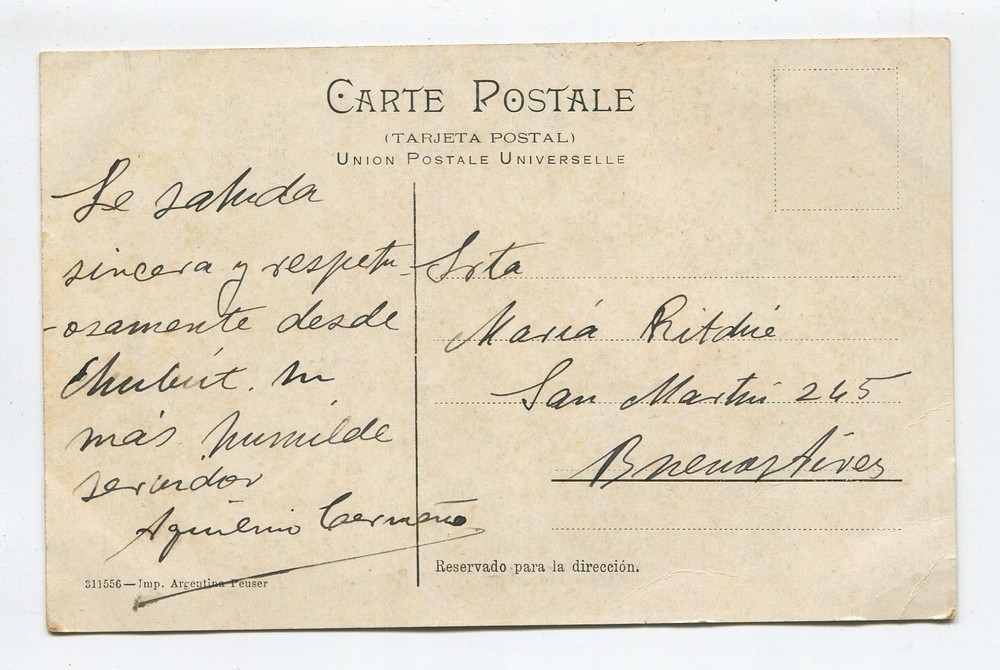 CARTE POSTALE
(TARJETA POSTAL)
UNION POSTALE UNIVERSELLE
Le saluda
sincera y respetu-
-osamente desde
Chubút. su
más humilde
servidor
Aquilino Cermeño
Srta
María Ritchie
San Martín 245
Buenos Aires
Reservado para la dirección.
311556—Imp. Argentina Peuser